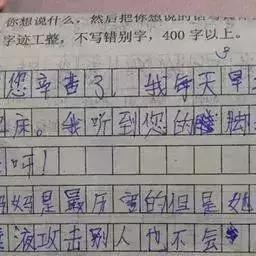 你想说什么，然后把你想说的话写
字迹工整，不写错别字，400字以上。
您辛苦了，我每天早
床。我听到您的脚
呀！
妈是最厉害的但是她
液攻击别人也不会